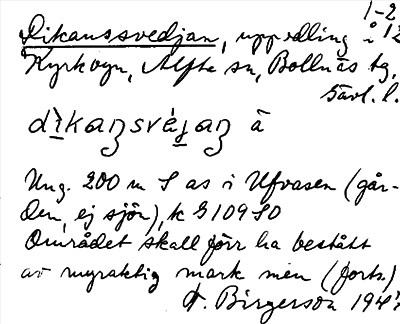 1-2
Dikanssvedjan, uppodling i 12
Kyrkbyn, Alfta sn, Bollnäs tg,
Gävl. l.
dìkaŋsvé̱jaŋ å
Ung. 200 m S as i Ufvasen (går-
den, ej sjön), k S 109 SO
Området skall förr ha bestått
av myraktig mark men (forts.)
Birgerson 194